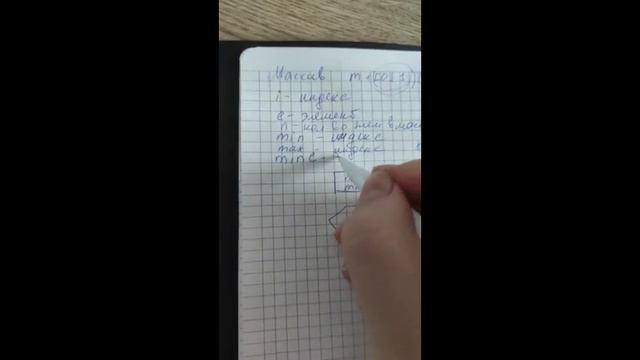 Массив m
i - индекс
e - элемент
n - кол во элем в мас
min - индекс
max - индекс
min e -